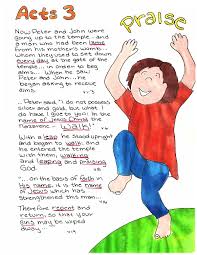 Acts 3
praise
Now Peter and John were
going up to the temple - and
a man who had been lame
from his mother's womb...
whom they used to set down
every day at the gate of the
temple... in order to beg
alms... When he saw
Peter and John... he
began asking to receive
alms.
...Peter said, "I do not possess
silver and gold, but what I
do have I give to you! In the
name of Jesus Christ the
Nazarene - Walk!"
With a leap he stood upright
and began to walk; and
he entered the temple
with them, walking
and leaping and praising
GOD.
"...on the basis of faith in
His name, it is the name
of Jesus which has
strengthened this man...
Therefore repent and
return, so that your
sins may be wiped
away...